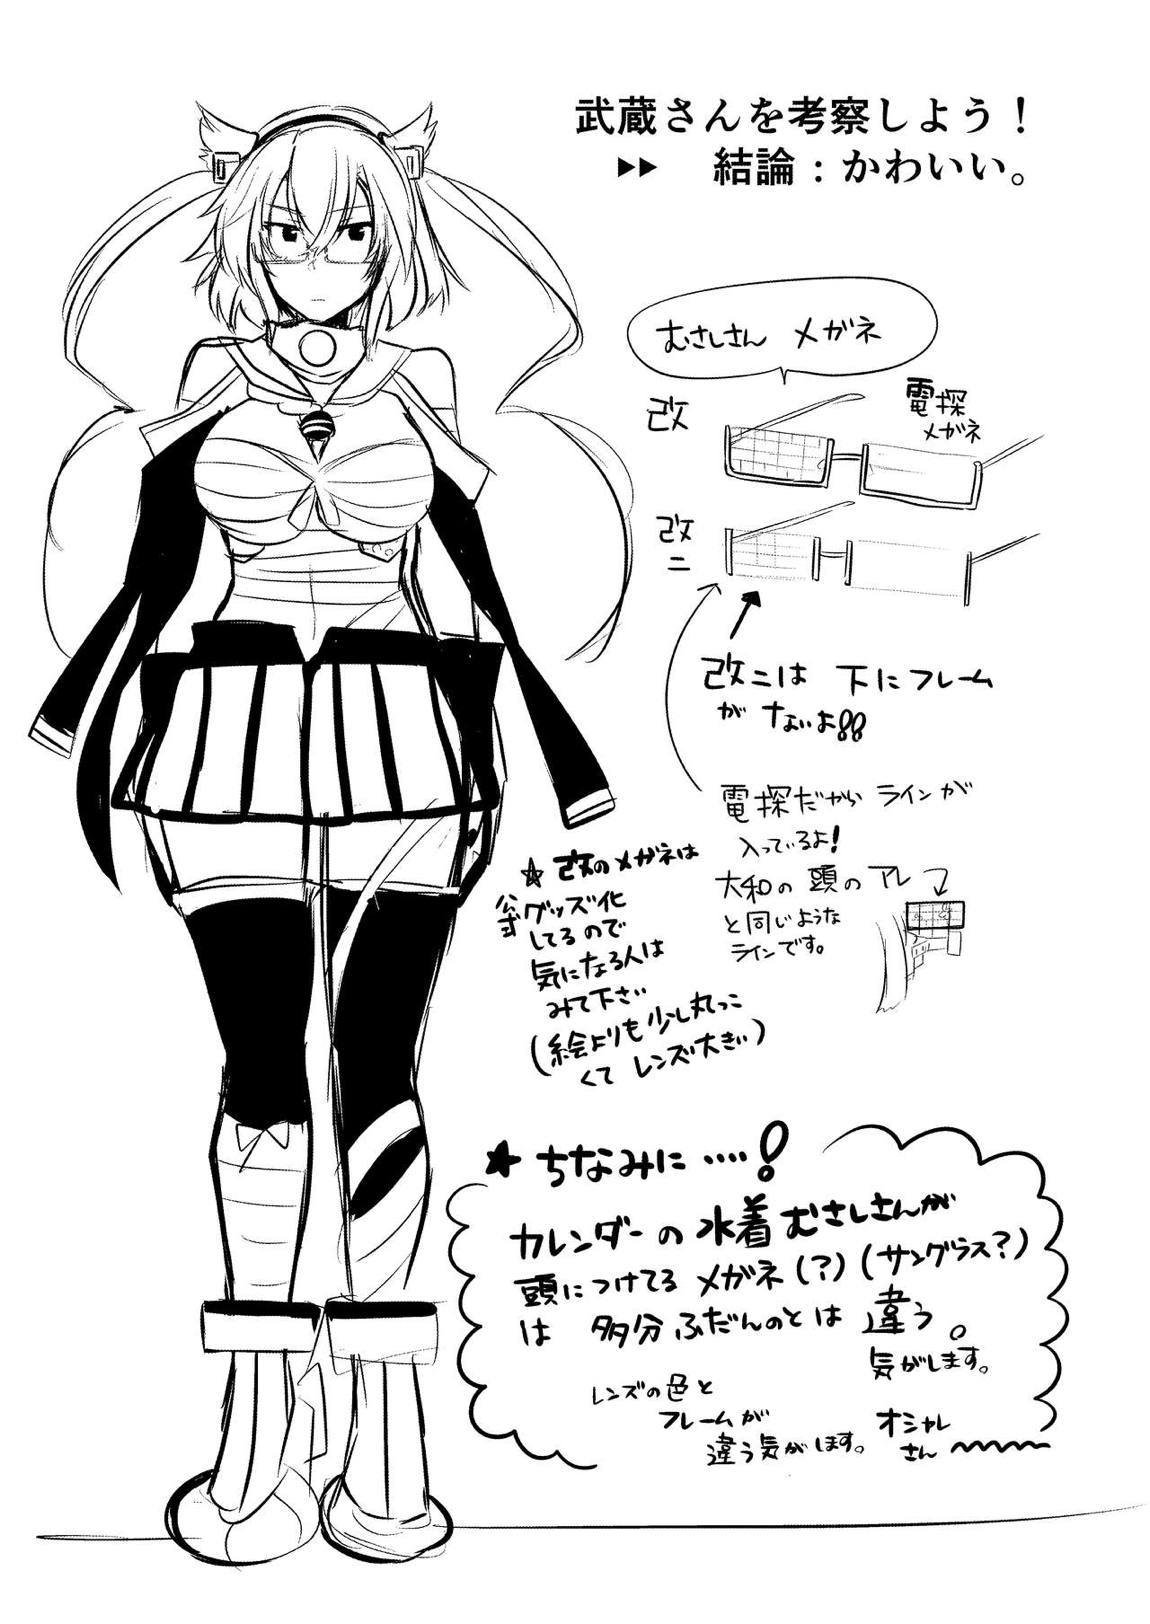 武蔵さんを考察しよう！
▶▶ 結論：かわいい。
むさしさん メガネ
改
電探
メガネ
改
二
改二は 下にフレーム
が ないよ!!
電探だから ラインが
入っているよ!
大和の頭のアレ
と同じような
ラインです。
☆改のメガネは
公式グッズ化
してるので
気になる人は
みて下さい
(絵よりも少し丸っこ
くて レンズ大きい)
★ ちなみに ‥‥!
カレンダーの水着むさしさんが
頭につけてるメガネ(?)(サングラス?)
は 多分ふだんのとは 違う。
気がします。
レンズの色と
フレームが
違う気がします。
オシャレ
さん